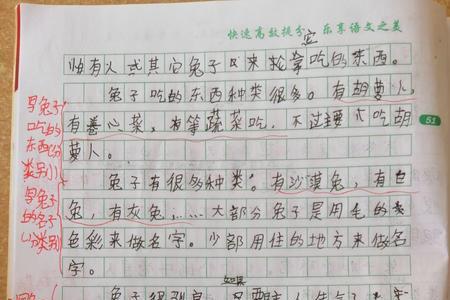 快速高效提分 乐享语文之美
它
怕有人或其它兔子又来抢拿吃的东西。
兔子吃的东西种类很多。有胡萝人,
有善心菜,有等蔬菜吃,不过主要吃胡
萝人。
51
写兔子
吃的
东西(分
类别)
兔子有很多种类。有沙漠兔,有白
兔,有灰兔,……大部分兔子是用毛的
色彩来做名字。少部用住的地方来做名
字。
写兔子
的名子
(分类别)
如果
兔子